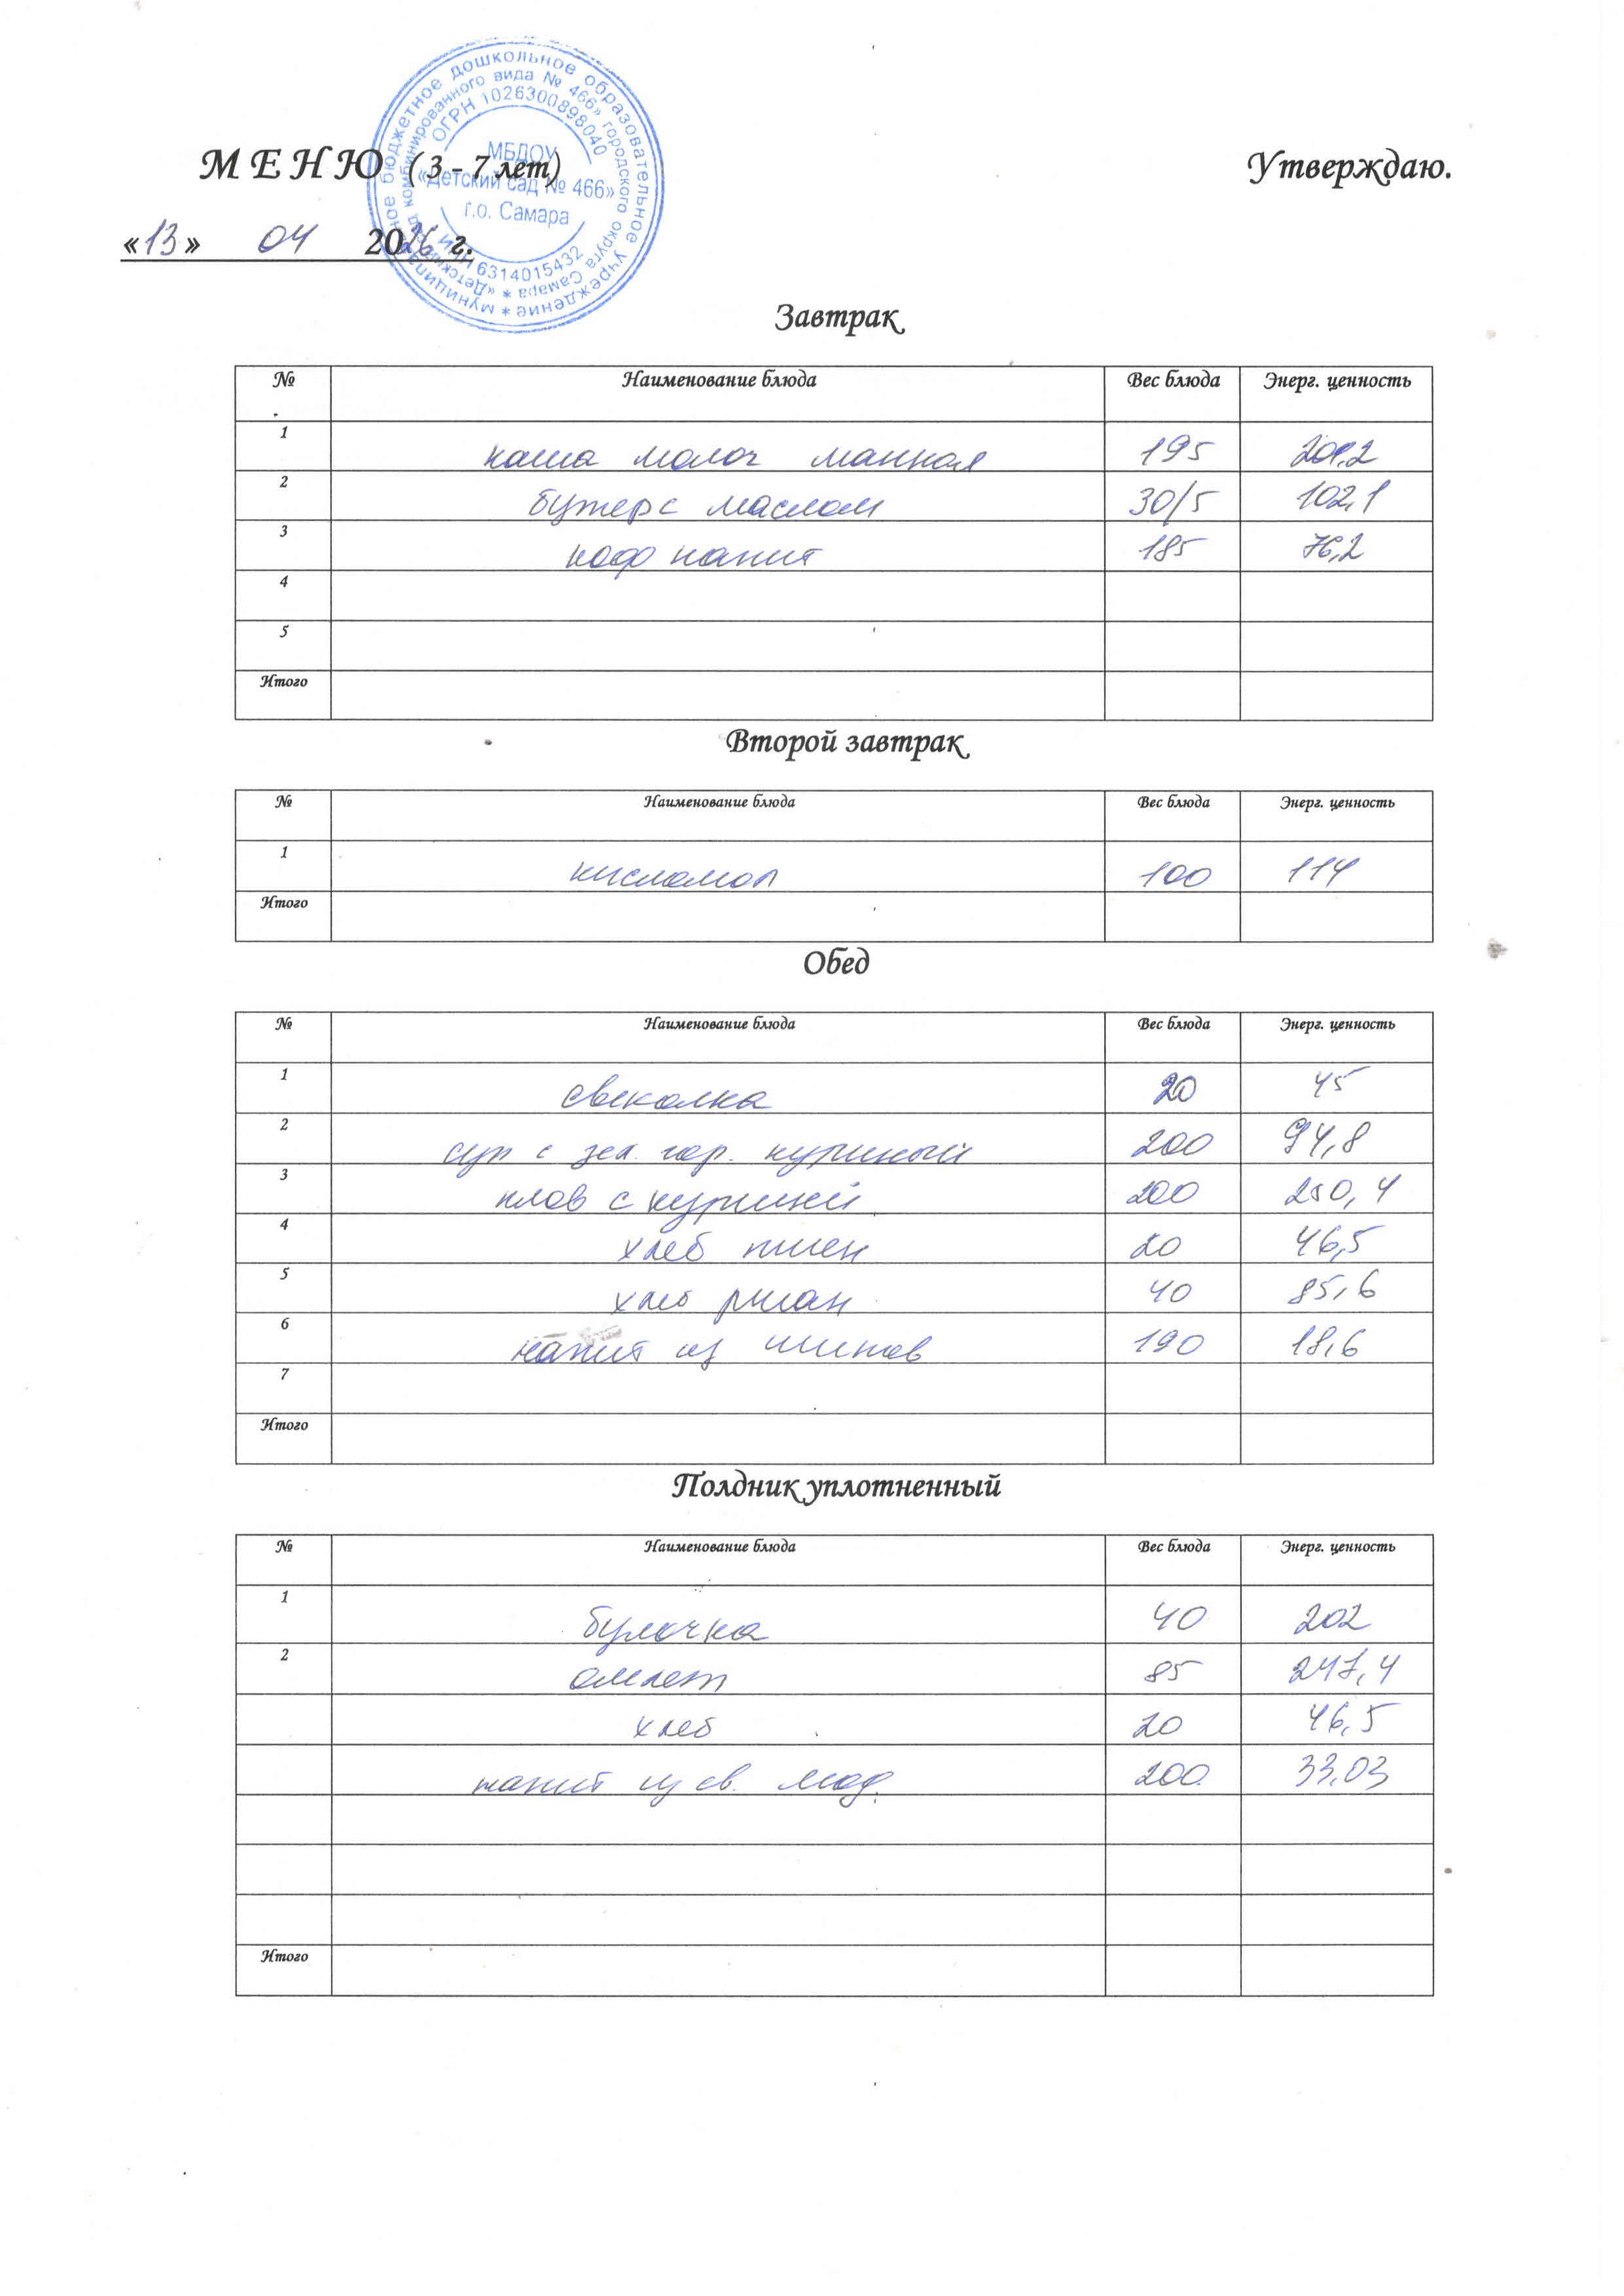 муниципальное бюджетное дошкольное образовательное учреждение *
«Детский сад комбинированного вида № 466» городского округа Самара *
ОГРН 1026300898040
МБДОУ
«Детский сад № 466»
г.о. Самара
ИНН 6314015432
МЕНЮ (3 - 7 лет) Утверждаю.
«13» 04 2026 г.
Завтрак
№ Наименование блюда Вес блюда Энерг. ценность
1 каша молоч манная 195
2 бутер с маслом 30/5 102,1
3 коф напит 185 76,2
4
5
Итого
Второй завтрак
№ Наименование блюда Вес блюда Энерг. ценность
1 кисломол 100 114
Итого
Обед
№ Наименование блюда Вес блюда Энерг. ценность
1 свеколка 20 45
2 суп с зел. гор. куриный 200 94,8
3 плов с курицей 200 250,4
4 хлеб пшен 20 46,5
5 хлеб ржан 40 85,6
6 напит из шипов 190 18,6
7
Итого
Полдник уплотненный
№ Наименование блюда Вес блюда Энерг. ценность
1 булочка 40 202
2 омлет 85 247,4
хлеб 20 46,5
напит из св. 200 33,03
Итого